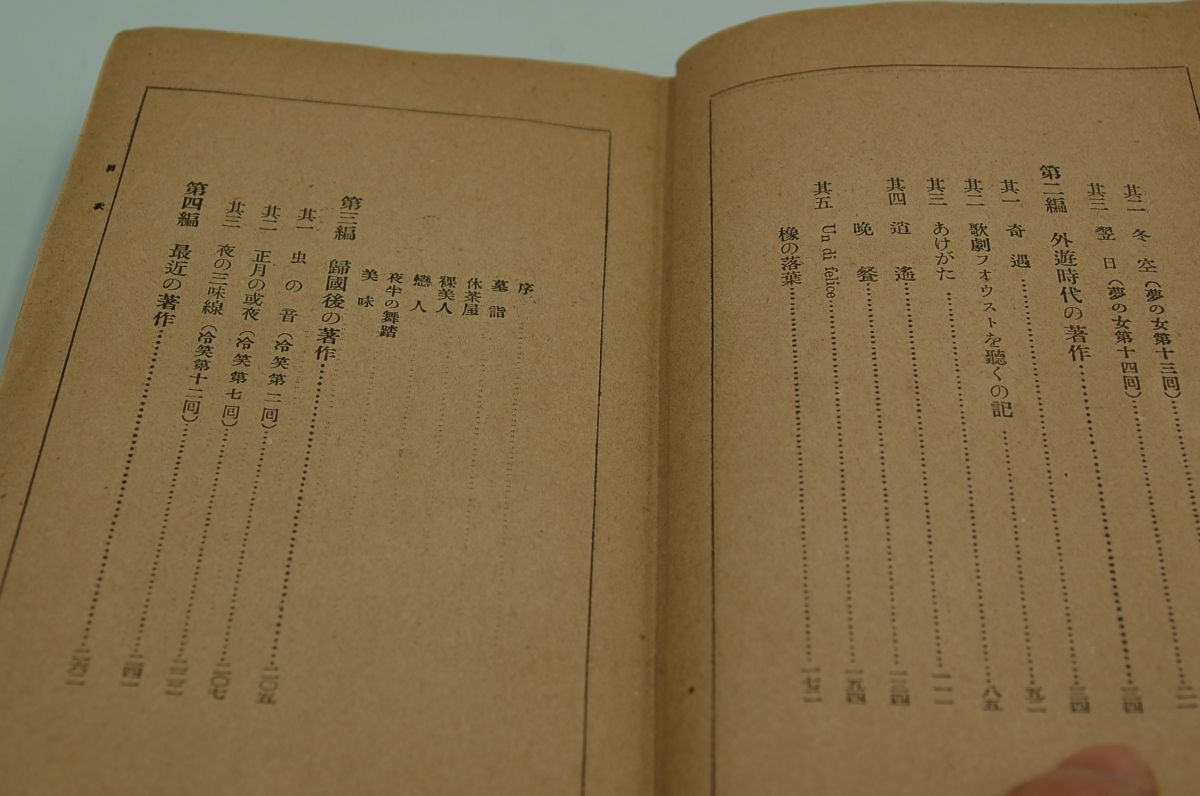 其二 冬空(夢の女第十三回)……二一
其三 翌日(夢の女第十四回)……三四
第二編 外遊時代の著作……三四
其一 奇遇……五一
其二 歌劇フオウストを聽くの記……八五
其三 あけがた……一一一
其四 逍遙……一三四
晩餐……一五四
其五 Un di felice
橡の落葉……一七一
序
墓詣
休茶屋
裸美人
戀人
夜半の舞踏
美味
第三編 歸國後の著作……二〇五
其一 虫の音(冷笑第二回)
其二 正月の或夜(冷笑第七回)
其三 夜の三味線(冷笑第十二回)
第四編 最近の著作
目次